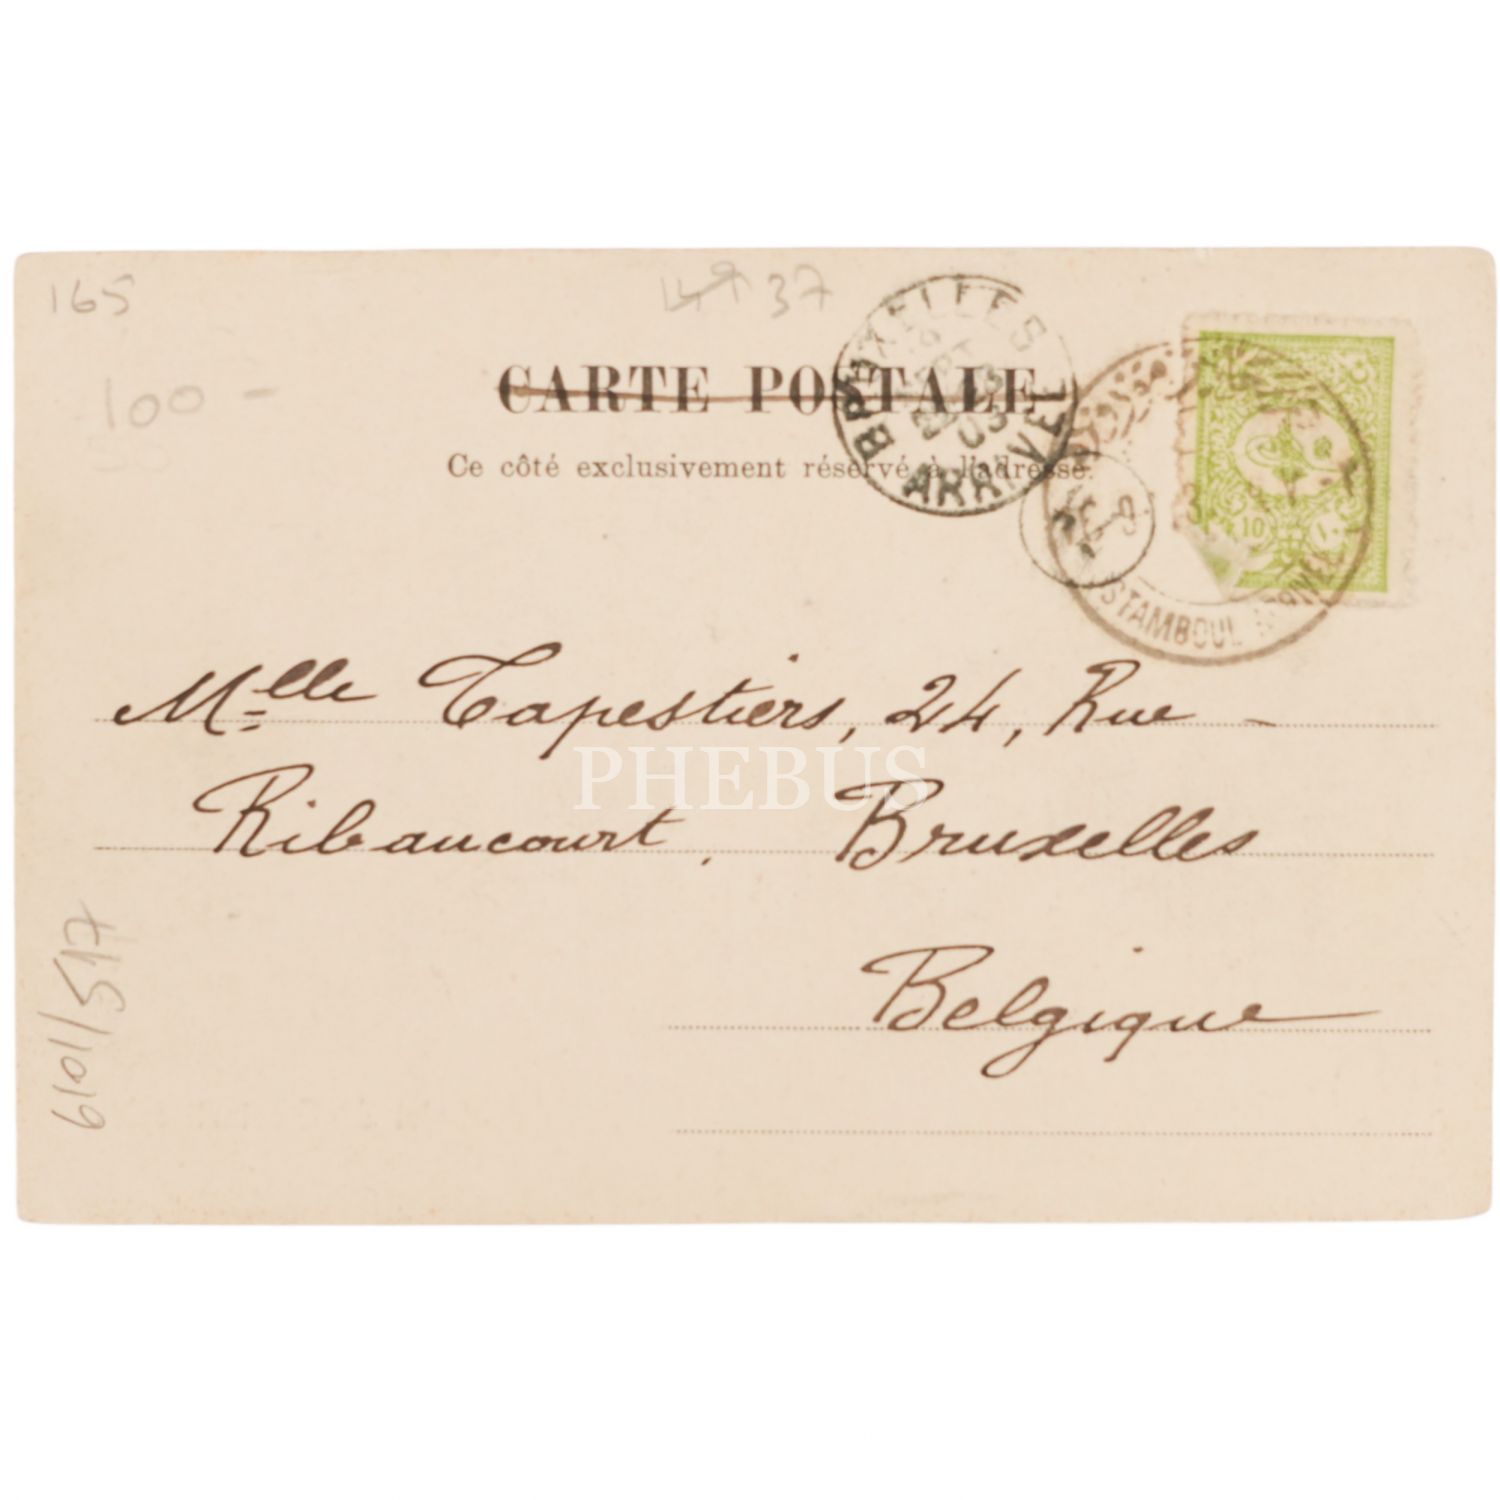 165
37
100 -
BRUXELLES
ARRIVÉE
03
CARTE POSTALE
Ce côté exclusivement réservé à l'adresse.
10
STAMBOUL
Mlle Tapestiers, 24, Rue -
PHEBUS
Ribaucourt, Bruxelles
Belgique
6101/517